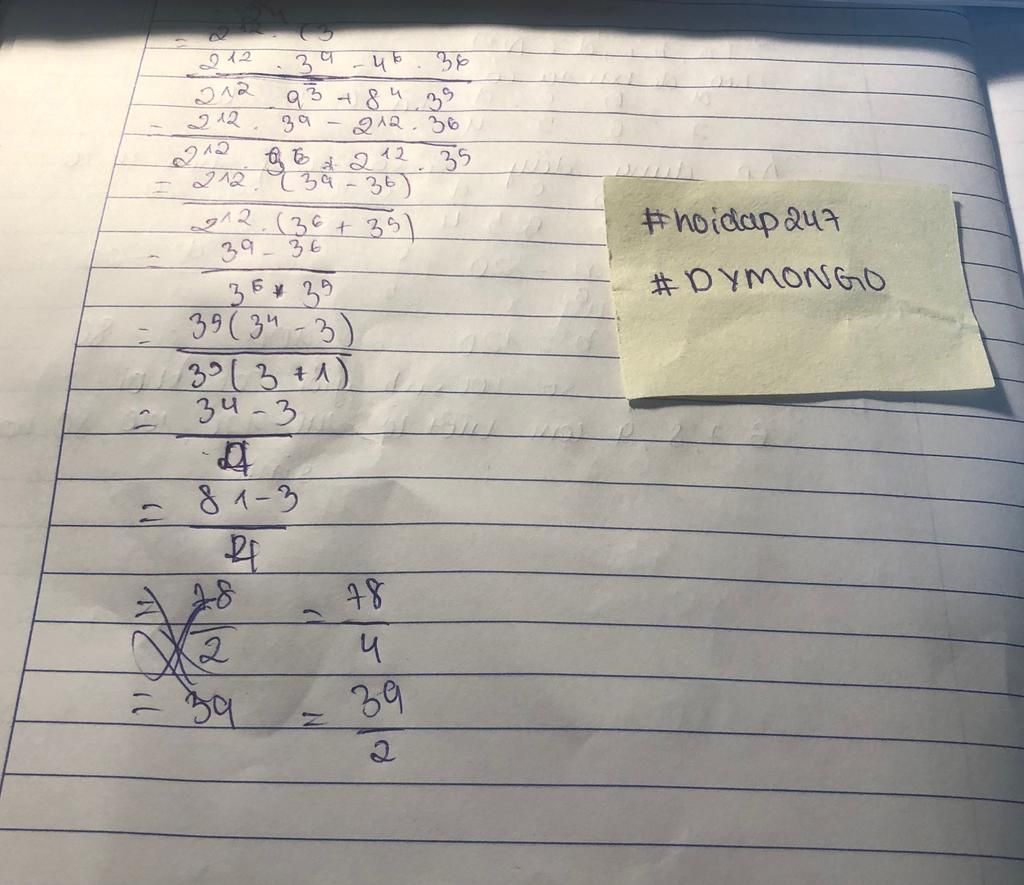 = 2¹² . (3
2¹² . 3⁹ - 4⁶ . 3⁶
2¹² . 9³ + 8⁴ . 3⁵
= 2¹² . 3⁹ - 2¹² . 3⁶
2¹² . 3⁶ + 2¹² . 3⁵
= 2¹² . (3⁹ - 3⁶)
2¹² . (3⁶ + 3⁵)
= 3⁹ - 3⁶
3⁶ + 3⁵
= 3⁵(3⁴ - 3)
3⁵(3 + 1)
= 3⁴ - 3
4
= 81 - 3
4
= 78 = 78
2 4
= 39 = 39
2
#hoidap247
#DYMONGO